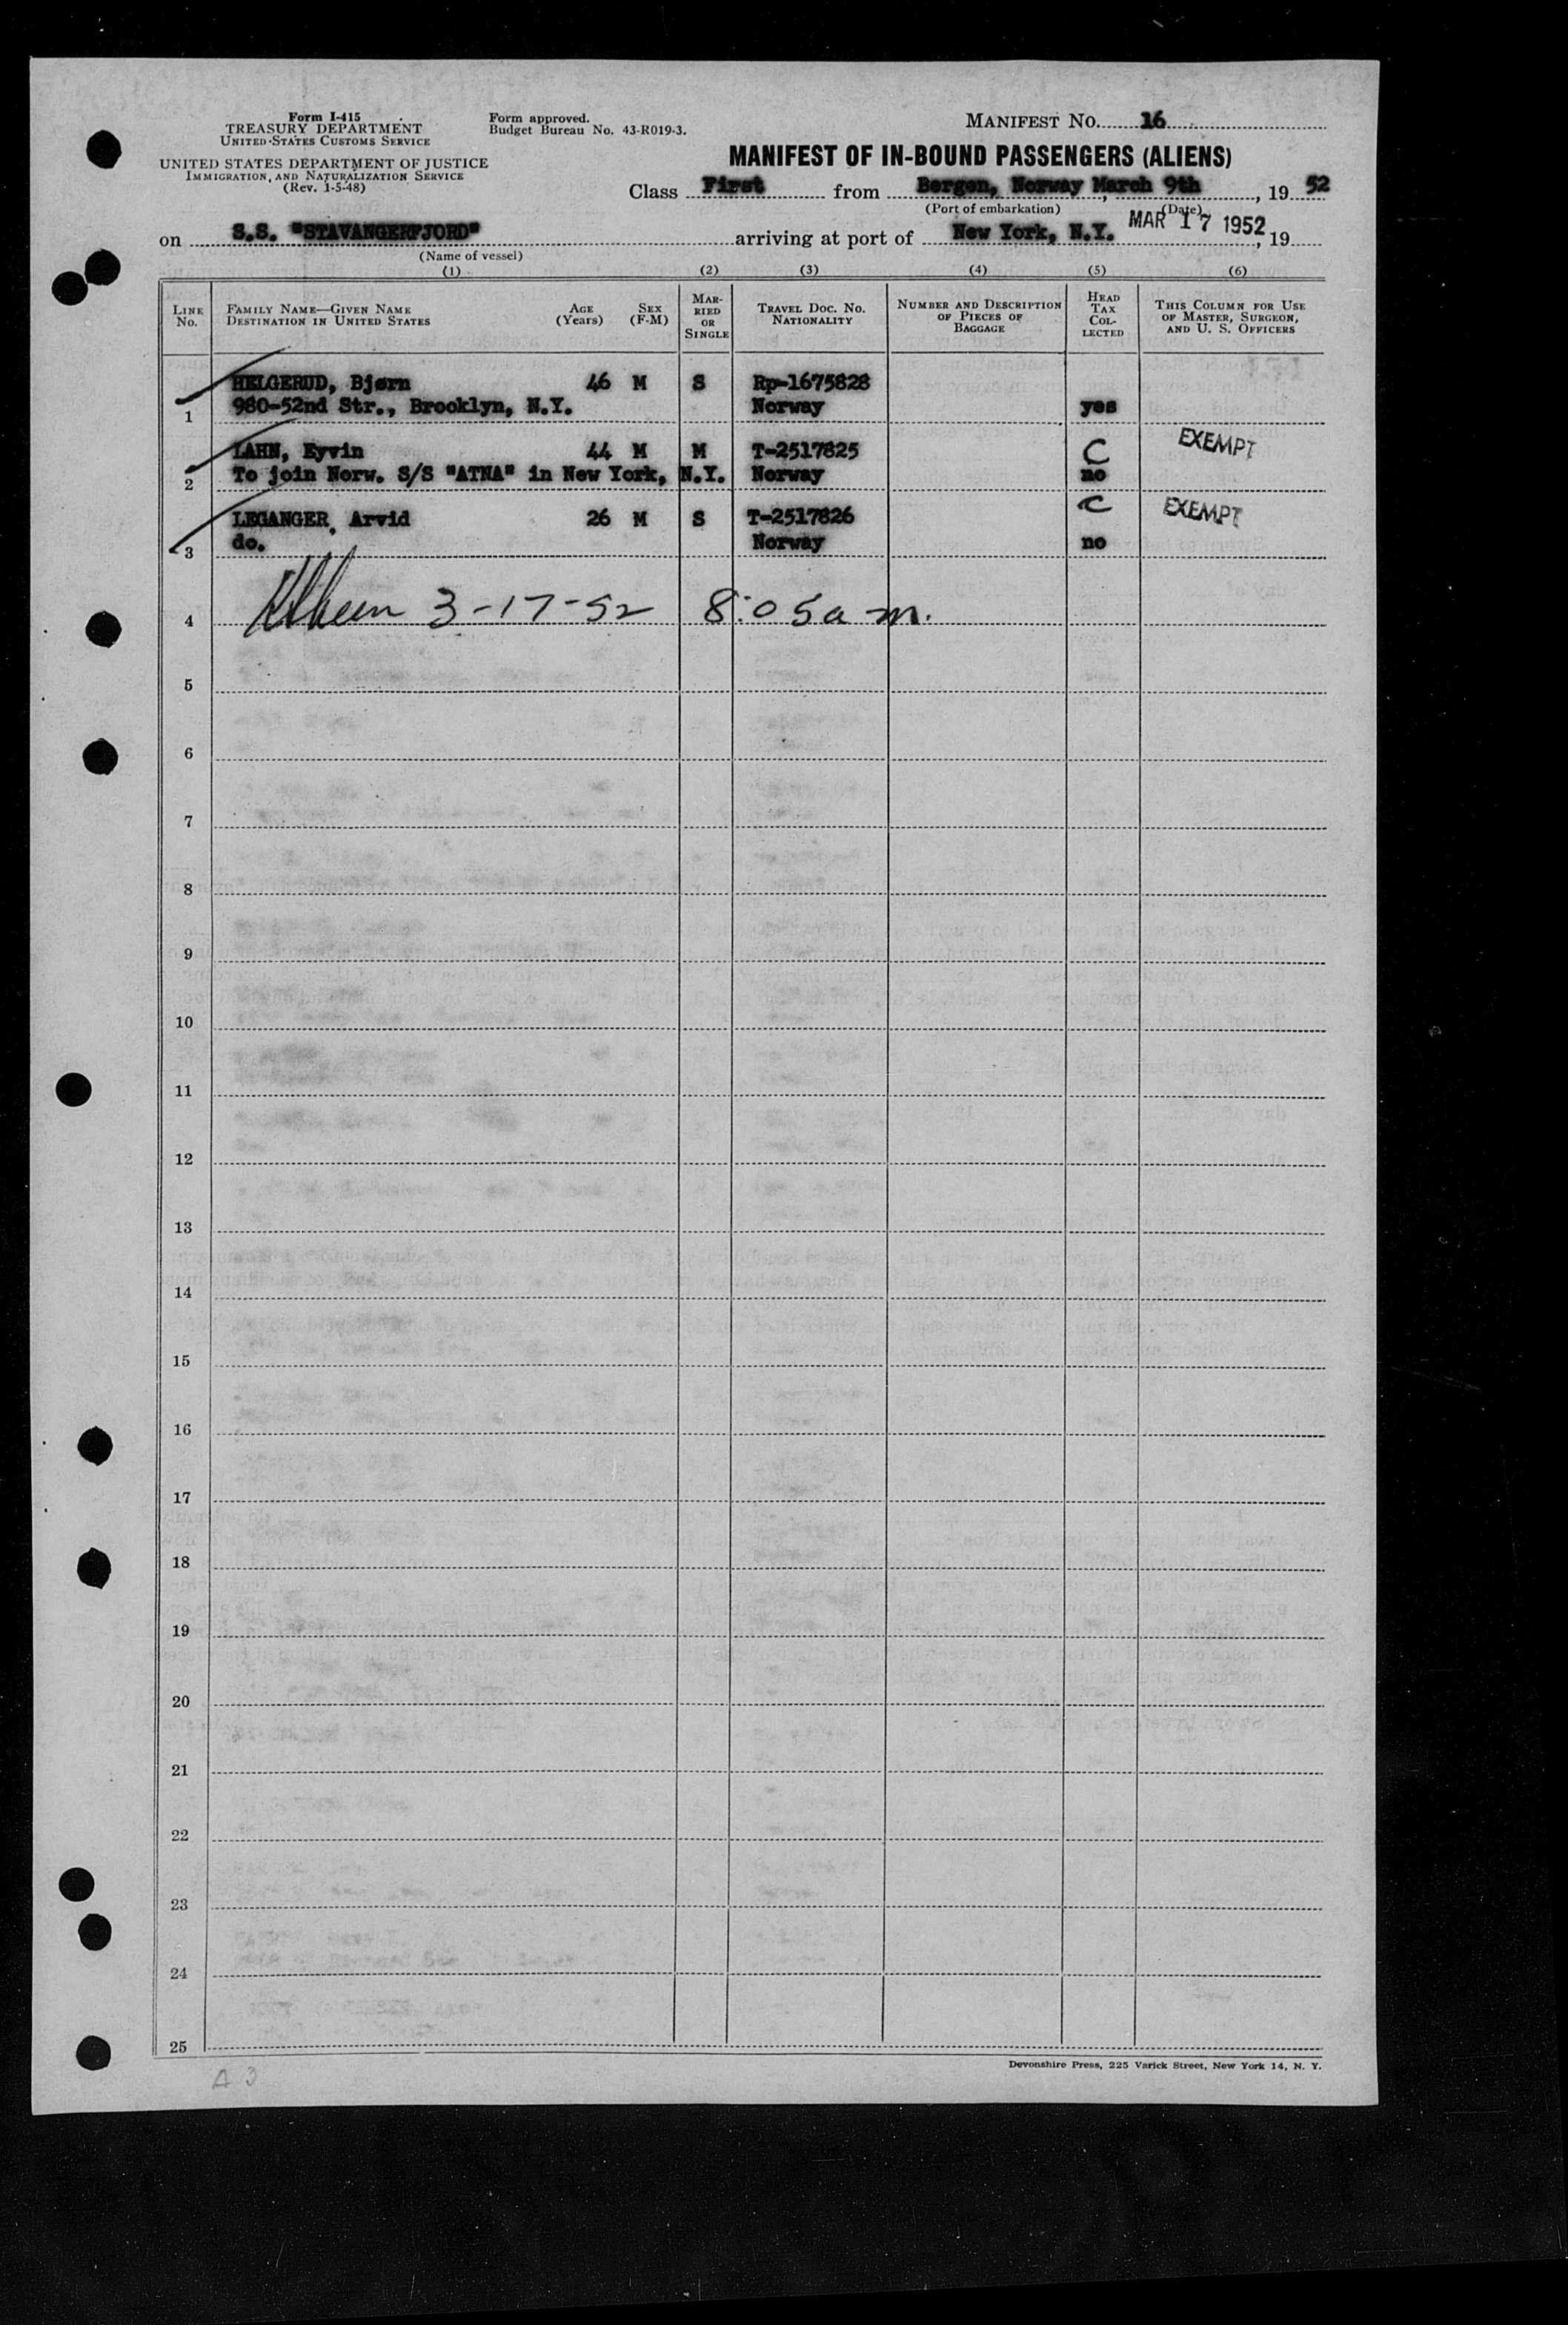 Form I-415
TREASURY DEPARTMENT
UNITED STATES CUSTOMS SERVICE
UNITED STATES DEPARTMENT OF JUSTICE
IMMIGRATION, AND NATURALIZATION SERVICE
(Rev. 1-5-48)
Form approved.
Budget Bureau No. 43-R019-3.
MANIFEST NO. 16
MANIFEST OF IN-BOUND PASSENGERS (ALIENS)
Class First from Bergen, Norway, March 9th, 19 52
(Port of embarkation) (Date)
on S.S. "STAVANGERFJORD" arriving at port of New York, N.Y. MAR 17 1952, 19
(Name of vessel)
(1) (2) (3) (4) (5) (6)
LINE No. FAMILY NAME—GIVEN NAME DESTINATION IN UNITED STATES AGE (Years) SEX (F-M) MARRIED OR SINGLE TRAVEL DOC. NO. NATIONALITY NUMBER AND DESCRIPTION OF PIECES OF BAGGAGE HEAD TAX COLLECTED THIS COLUMN FOR USE OF MASTER, SURGEON, AND U. S. OFFICERS
HELGERUD, Bjørn 46 M S Rp-1675828
1 980-52nd Str., Brooklyn, N.Y. Norway yes
LAHN, Eyvin 44 M M T-2517825 C EXEMPT
2 To join Norw. S/S "ATNA" in New York, N.Y. Norway no
LEGANGER, Arvid 26 M S T-2517826 C EXEMPT
3 do. Norway no
4 3-17-52 8:05 a m.
5
6
7
8
9
10
11
12
13
14
15
16
17
18
19
20
21
22
23
24
25
Devonshire Press, 225 Varick Street, New York 14, N. Y.
A 3